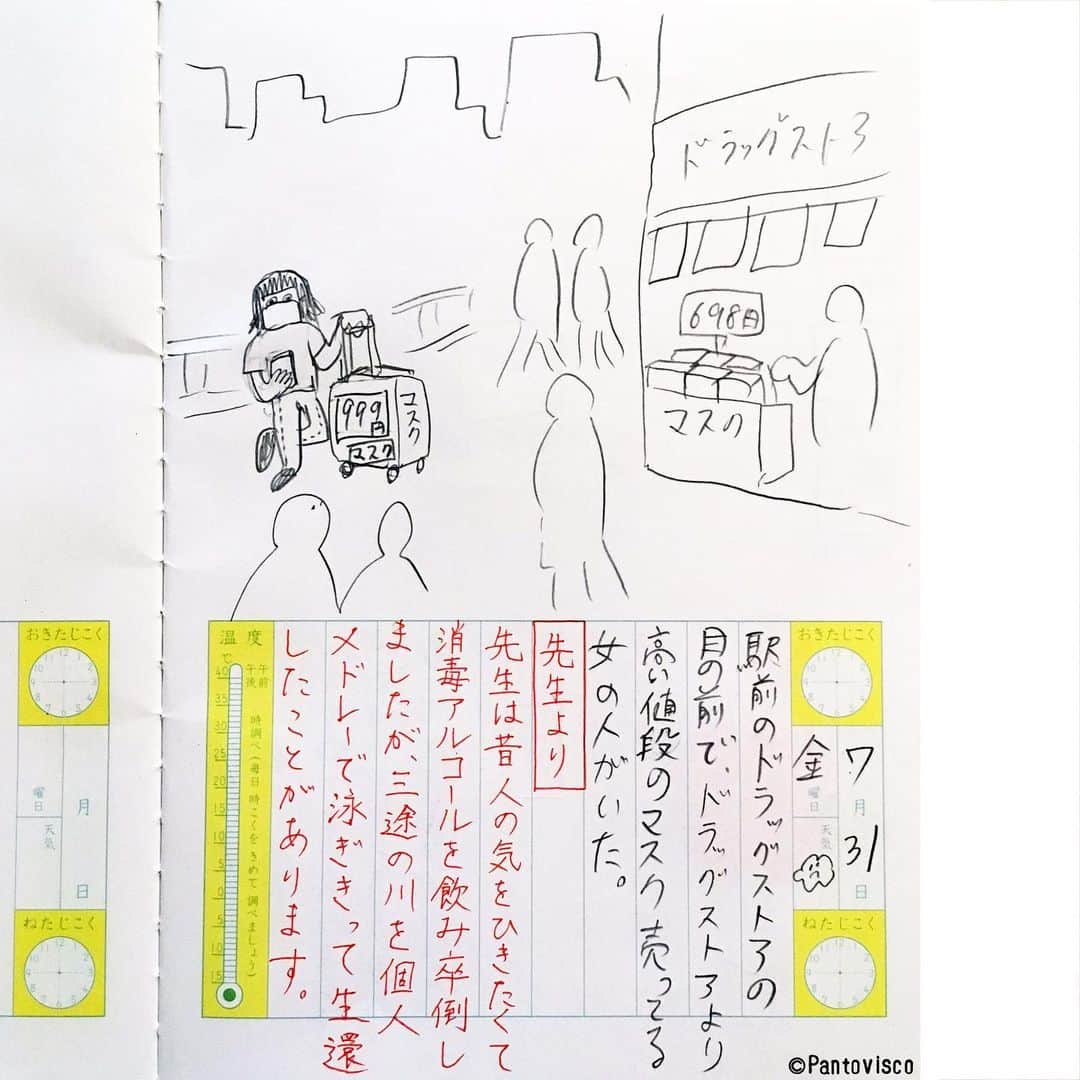 ドラッグストア
698円
マスク
999円
マスク
マスク
おきたじこく
7月31日
金曜日
天気
ねたじこく
駅前のドラッグストアの
目の前で、ドラッグストアより
高い値段のマスク売ってる
女の人がいた。
先生より
先生は昔人の気をひきたくて
消毒アルコールを飲み卒倒し
ましたが、三途の川を個人
メドレーで泳ぎきって生還
したことがあります。
温度
℃
午前
午後
時調べ(毎日 時こくを きめて 調べましょう)
40
35
30
25
20
15
10
5
0
5
10
15
おきたじこく
月 日
曜日
天気
ねたじこく
©Pantovisco